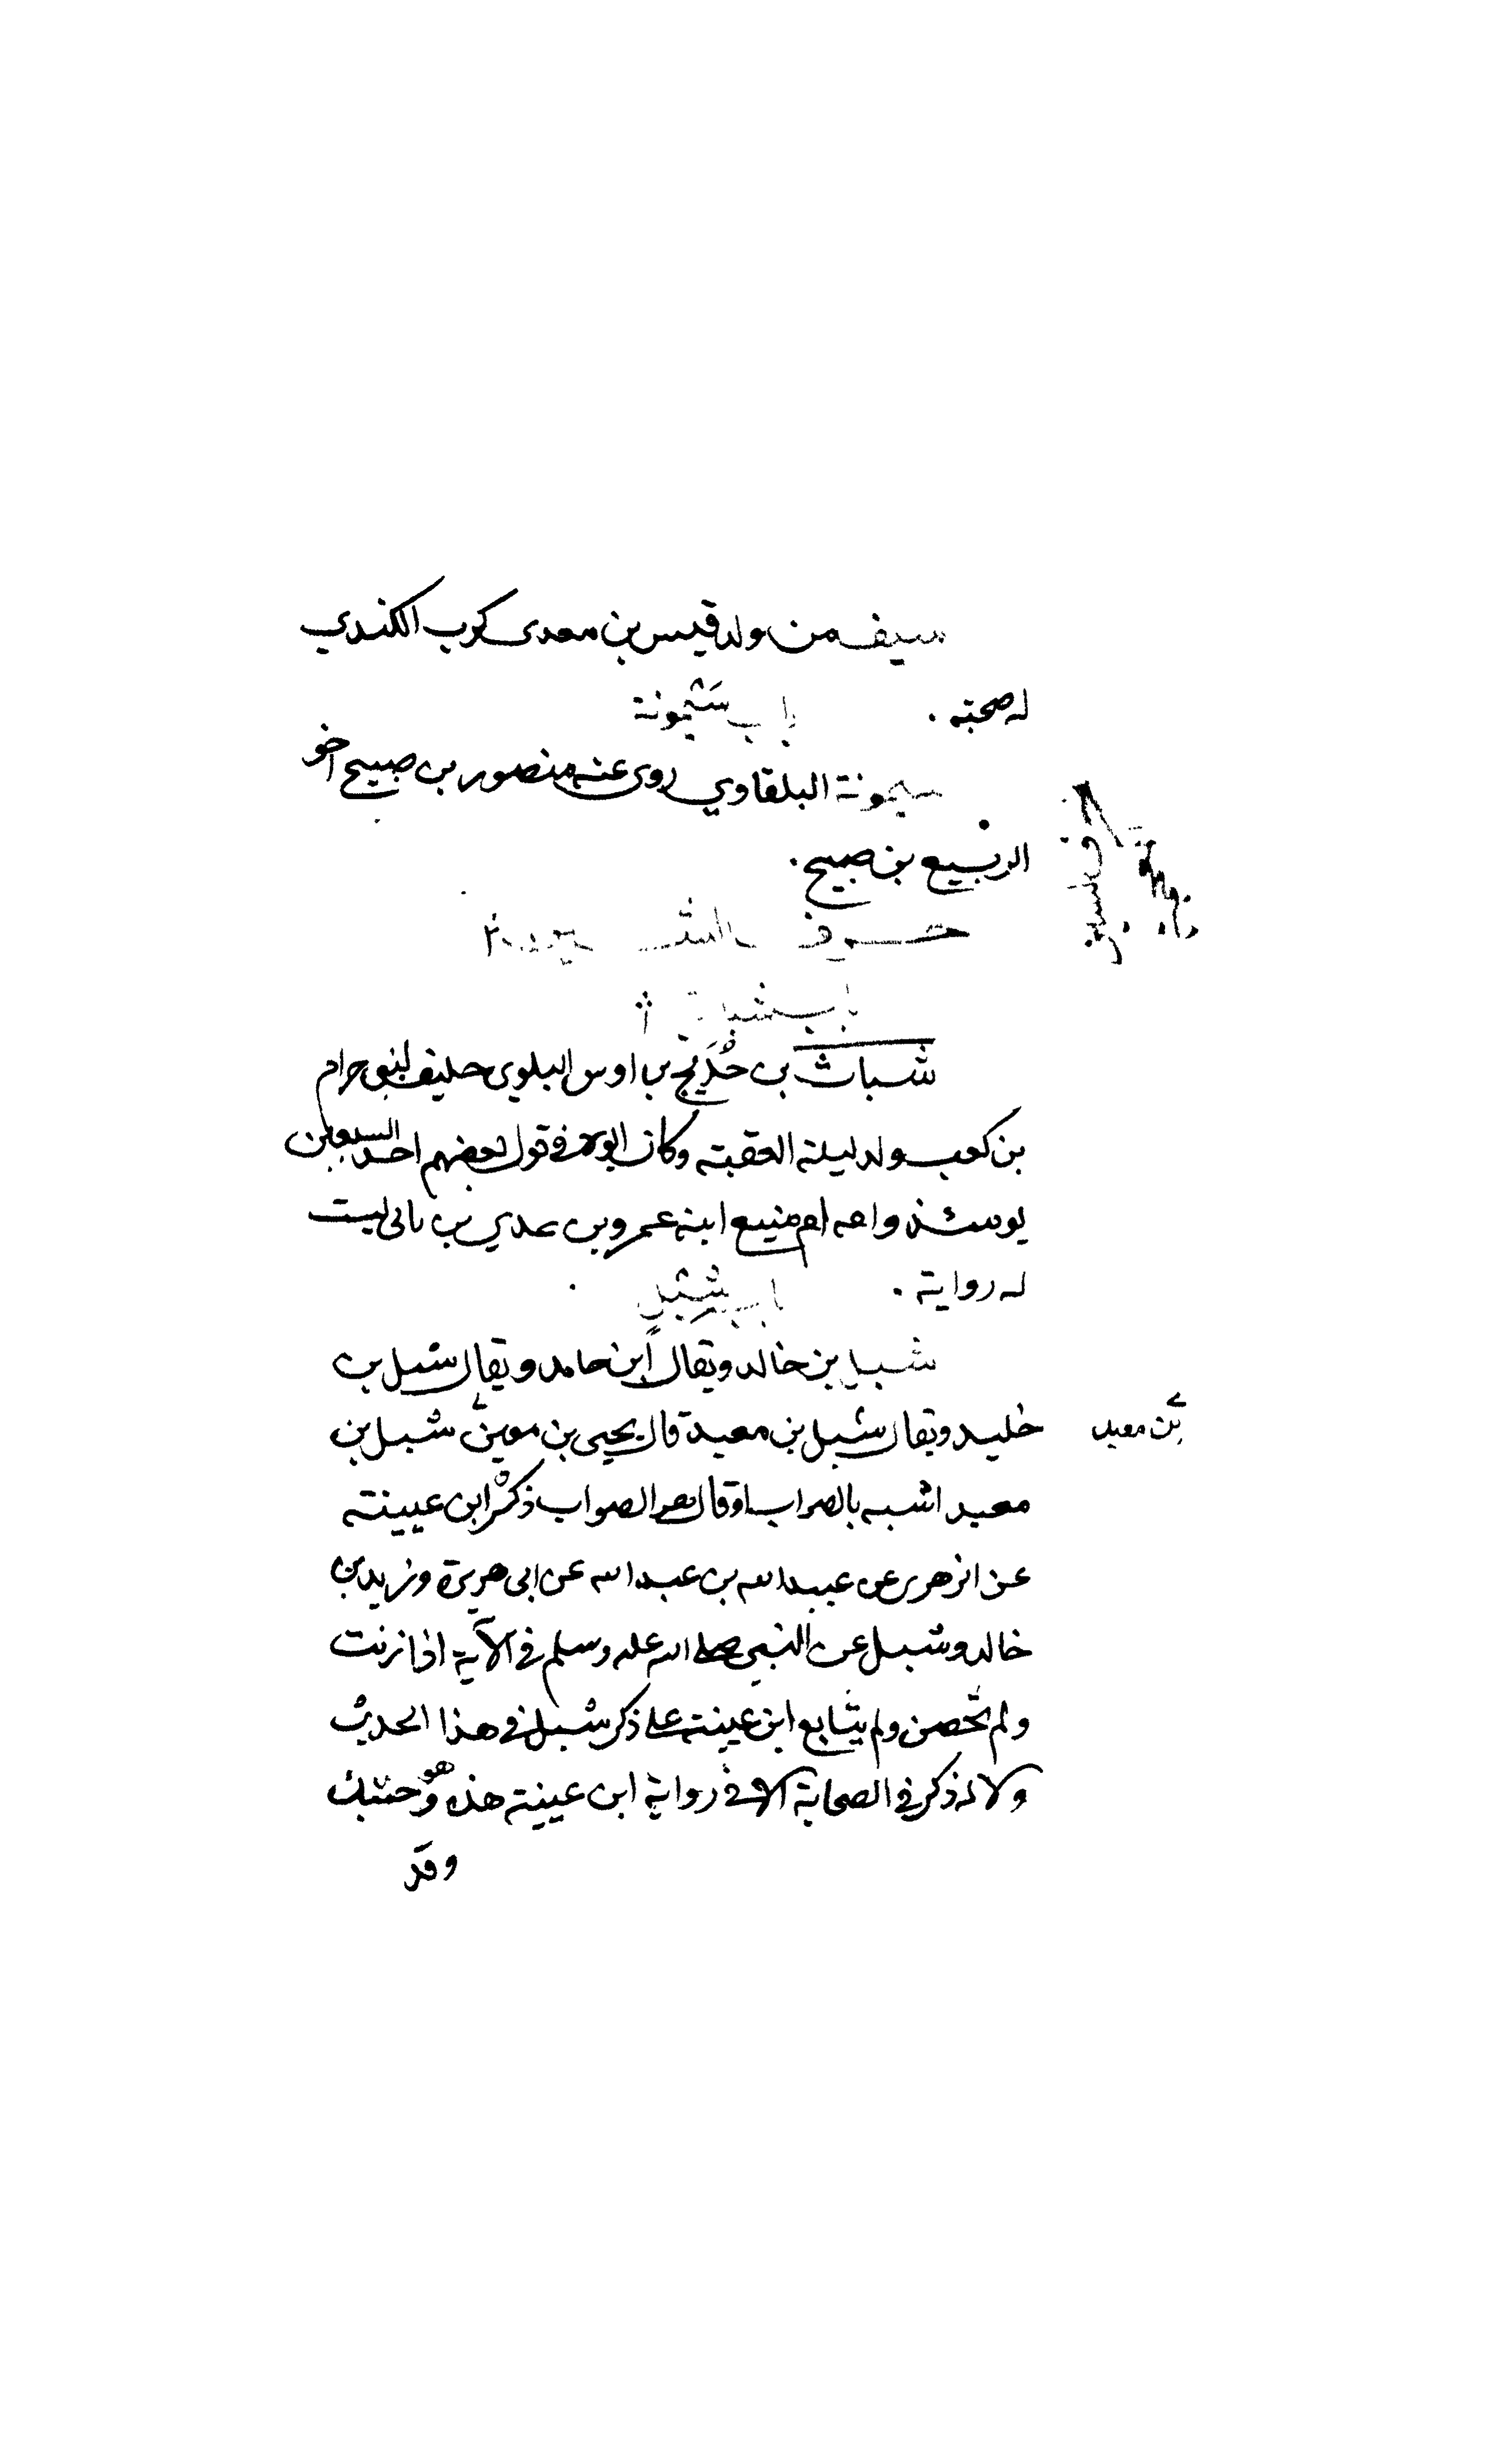 سيف من ولد قيس بن معدى كرب الكندي
له صحبة . باب سَيْمونة
سيمونة البلقاوي روى عنه منصور بن صبيح اخو
الربيع بن صبيح .
حرف الشين
باب شباث
شباث بن حُدَيْج بن اوس البلوي حليف لبني حرام
بن كعب ولد ليلة العقبة وكان ابوه في قول بعضهم احد السبعين
يومئذ وامه ام منيع ابنة عمرو بن عدي بن نابى ليست
له رواية . باب شِبْل
شبل بن خالد ويقال ابن حامد ويقال شبل بن
خليد ويقال شبل بن معبد قال يحيى بن معين شبل بن
بن معبد
معبد اشبه بالصواب وقال هو الصواب ذكره ابن عيينة
عن الزهرى عن عبيد الله بن عبد الله عن ابى هريرة وزيد بن
خالد وشبل عن النبي صلى الله عليه وسلم في الأمة اذا زنت
ولم تحصن ولم يتابع ابن عيينة على ذكر شبل في هذا الحديث
ولا له ذكر في الصحابة الا في رواية ابن عيينة هذه وهو
وقد